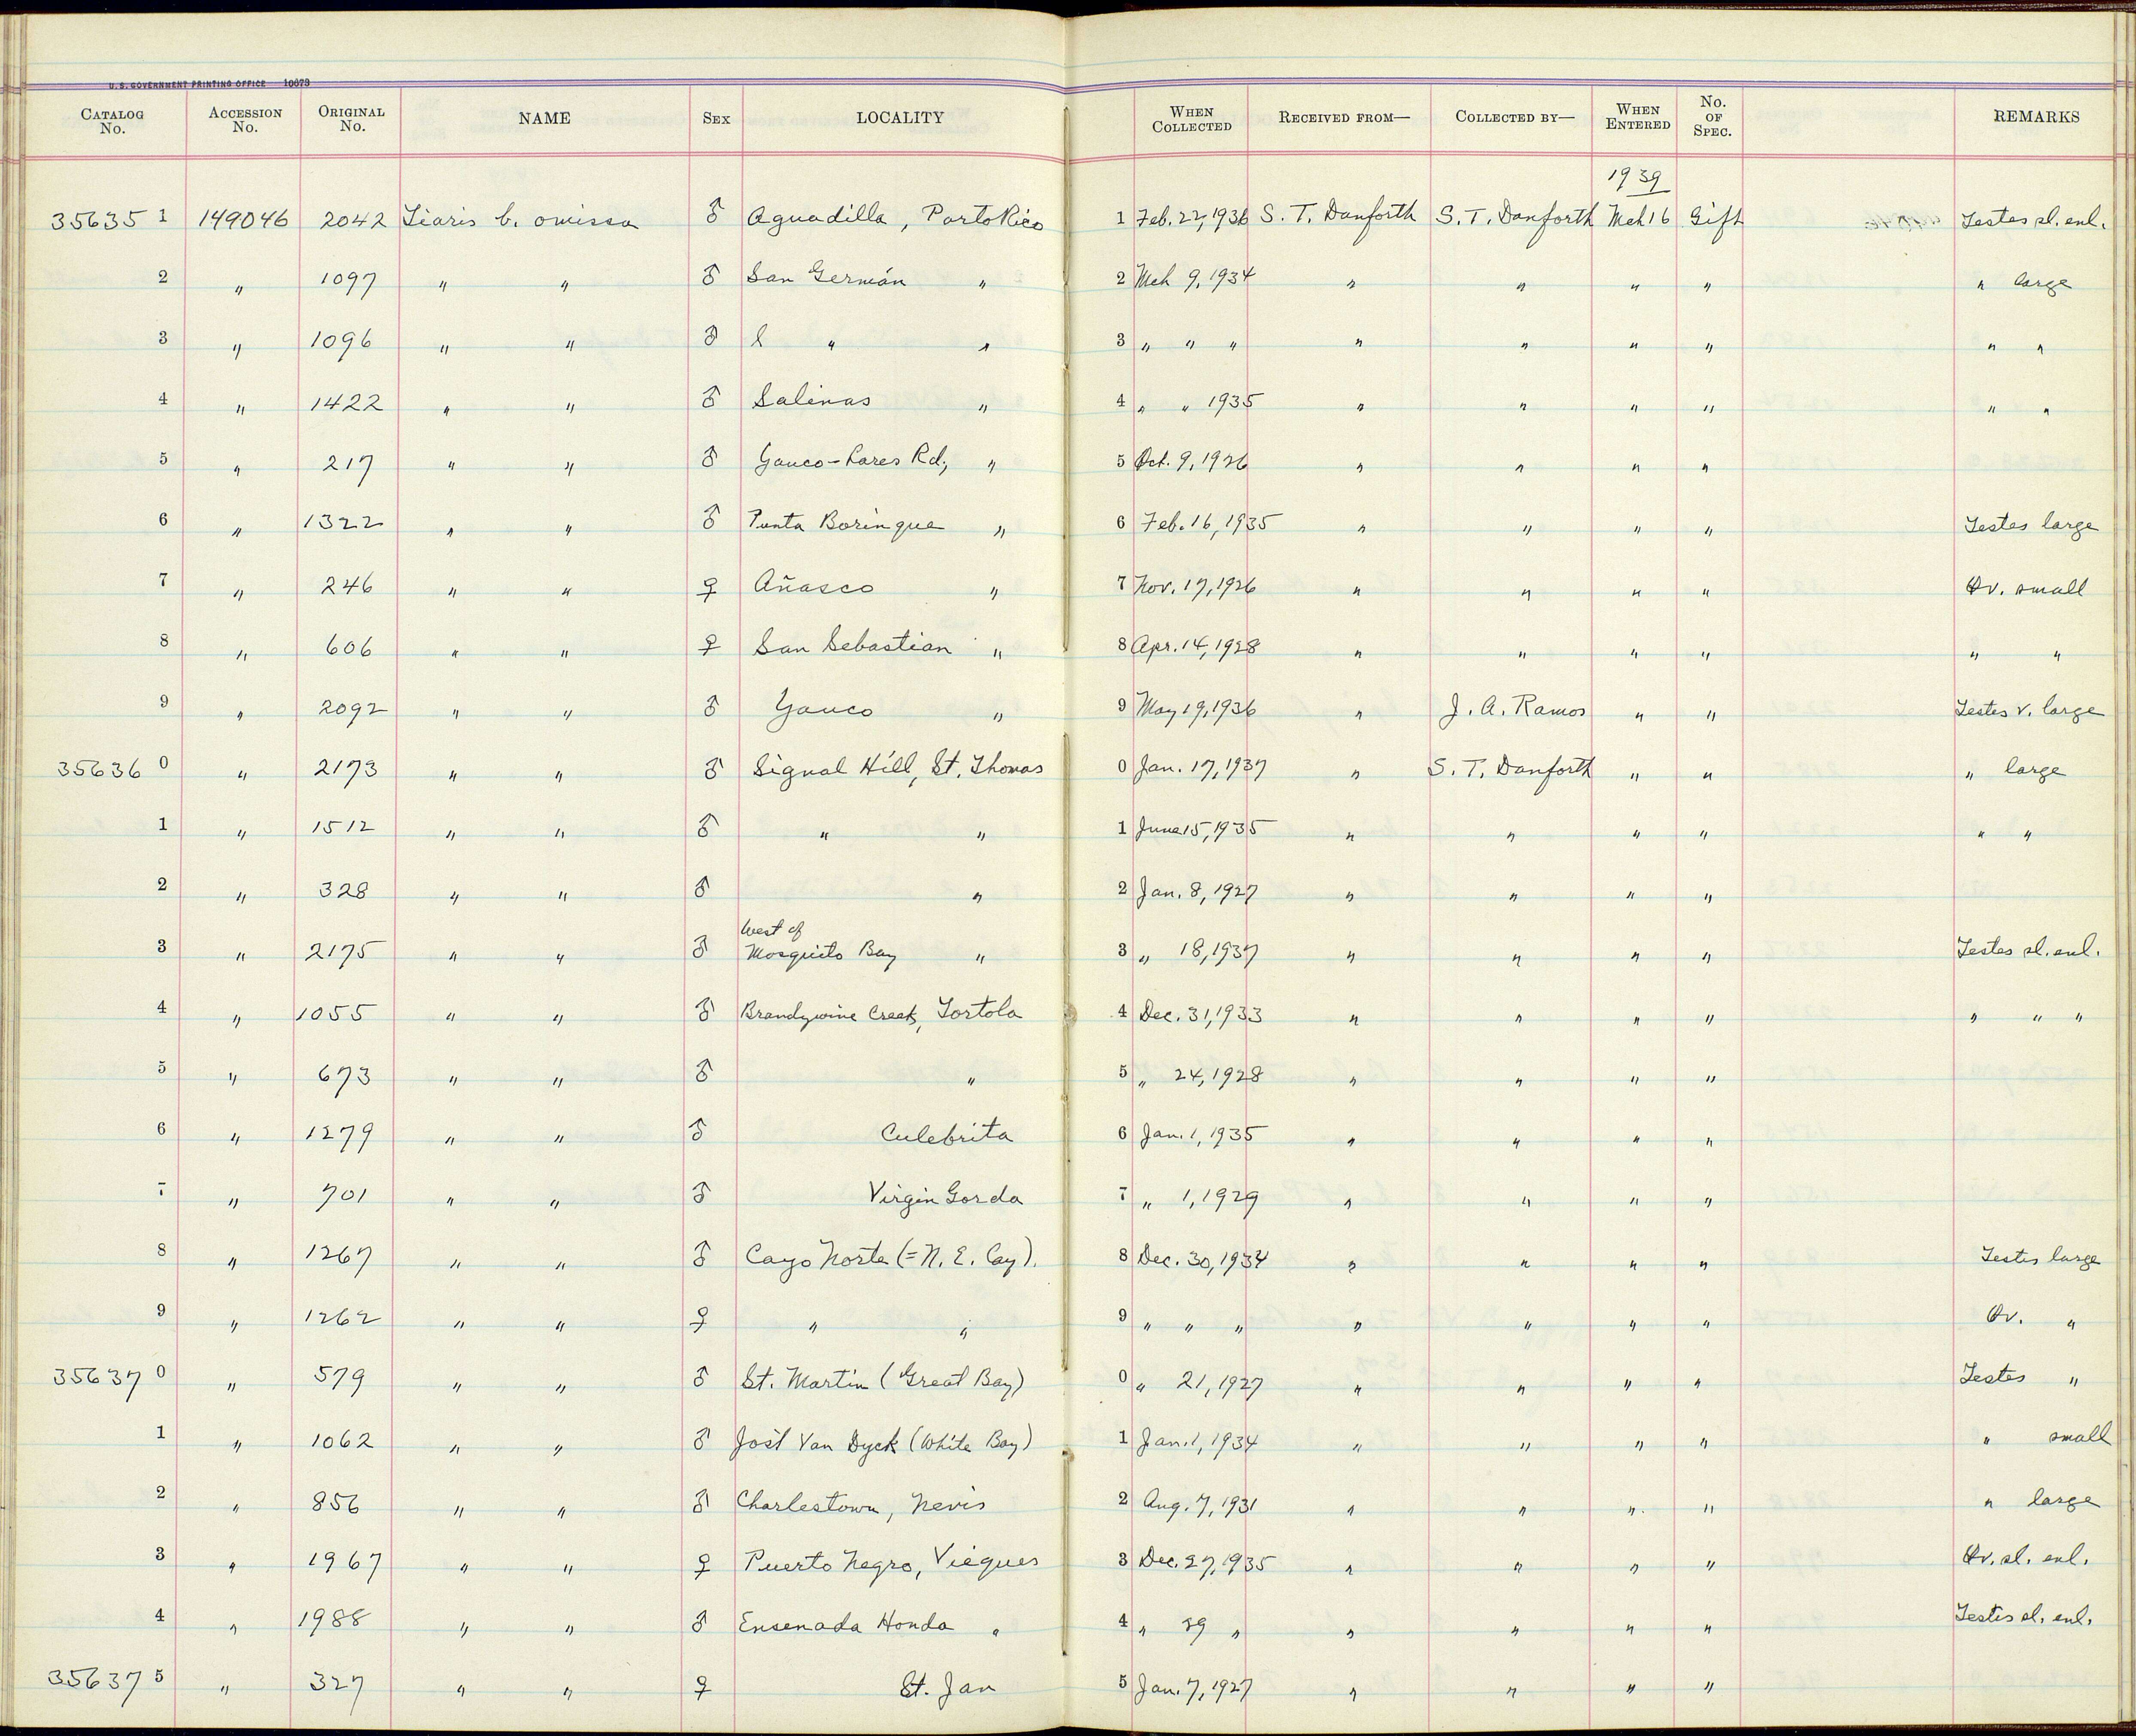 U. S. GOVERNMENT PRINTING OFFICE 10079
CATALOG No. ACCESSION No. ORIGINAL No. NAME SEX LOCALITY WHEN COLLECTED RECEIVED FROM— COLLECTED BY— WHEN ENTERED No. OF SPEC. REMARKS
1939
35635 1 149046 2042 Tiaris b. omissa ♂ Aguadilla, Porto Rico 1 Feb. 22, 1936 S. T. Danforth S. T. Danforth Mch 16 Gift Testes sl. enl.
2 " 1097 " " ♂ San Germán " 2 Mch 9, 1934 " " " " " large
3 " 1096 " " ♂ " " 3 " " " " " " " " "
4 " 1422 " " ♂ Salinas " 4 " " 1935 " " " " " "
5 " 217 " " ♂ Yauco-Lares Rd, " 5 Oct. 9, 1926 " " " "
6 " 1322 " " ♂ Punta Borinque " 6 Feb. 16, 1935 " " " " Testes large
7 " 246 " " ♀ Añasco " 7 Nov. 17, 1926 " " " " Ov. small
8 " 606 " " ♀ San Sebastian " 8 Apr. 14, 1928 " " " " " "
9 " 2092 " " ♂ Yauco " 9 May 19, 1936 " J. A. Ramos " " Testes v. large
35636 0 " 2173 " " ♂ Signal Hill, St. Thomas 0 Jan. 17, 1937 " S. T. Danforth " " " large
1 " 1512 " " ♂ " " 1 June 15, 1935 " " " " " "
2 " 328 " " ♂ " 2 Jan. 8, 1927 " " " "
3 " 2175 " " ♂ West of Mosquito Bay " 3 " 18, 1937 " " " " Testes sl. enl.
4 " 1055 " " ♂ Brandywine Creek, Tortola 4 Dec. 31, 1933 " " " " " " "
5 " 673 " " ♂ " 5 " 24, 1928 " " " "
6 " 1279 " " ♂ Culebrita 6 Jan. 1, 1935 " " " "
7 " 701 " " ♂ Virgin Gorda 7 " 1, 1929 " " " "
8 " 1267 " " ♂ Cayo Norte (= N. E. Cay). 8 Dec. 30, 1934 " " " " Testes large
9 " 1262 " " ♀ " " 9 " " " " " " " Ov. "
35637 0 " 579 " " ♂ St. Martin (Great Bay) 0 " 21, 1927 " " " " Testes "
1 " 1062 " " ♂ Jost Van Dyck (White Bay) 1 Jan. 1, 1934 " " " " " small
2 " 856 " " ♂ Charlestown, Nevis 2 Aug. 7, 1931 " " " " " large
3 " 1967 " " ♀ Puerto Negro, Vieques 3 Dec. 27, 1935 " " " " Ov. sl. enl.
4 " 1988 " " ♂ Ensenada Honda " 4 " 29 " " " " " Testis sl. enl.
35637 5 " 327 " " ♀ St. Jan 5 Jan. 7, 1927 " " " "